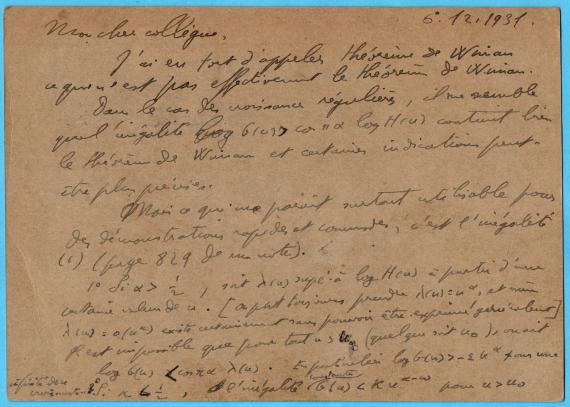 6.12.1931.
Mon cher collègue,
J'ai eu tort d'appeler théorème de Wiman
ce qui n'est pas effectivement le théorème de Wiman.
Dans le cas des croissances régulières, il me semble
que l'inégalité log b(u) > cos πα log H(u) contient bien
le théorème de Wiman et certaines indications peut-
être plus précises.
Mais ce qui me paraît surtout utilisable pour
des démonstrations rapides et commodes, c'est l'inégalité
(1) (page 829 de ma note).
1° Si α > 1/2, soit λ(u) supr à log H(u) à partir d'une
certaine valeur de u. [on peut toujours prendre λ(u) = u^α, et même
λ(u) = o(u^α) existe certainement sans pouvoir être exprimé
il est impossible que pour tout u > u0 (quel que soit u0), on ait
log b(u) < cos πα λ(u). En particulier log b(u) > -ε u^α pour une
2° Si α < 1/2, l'inégalité b(u) < K u pour u > u0